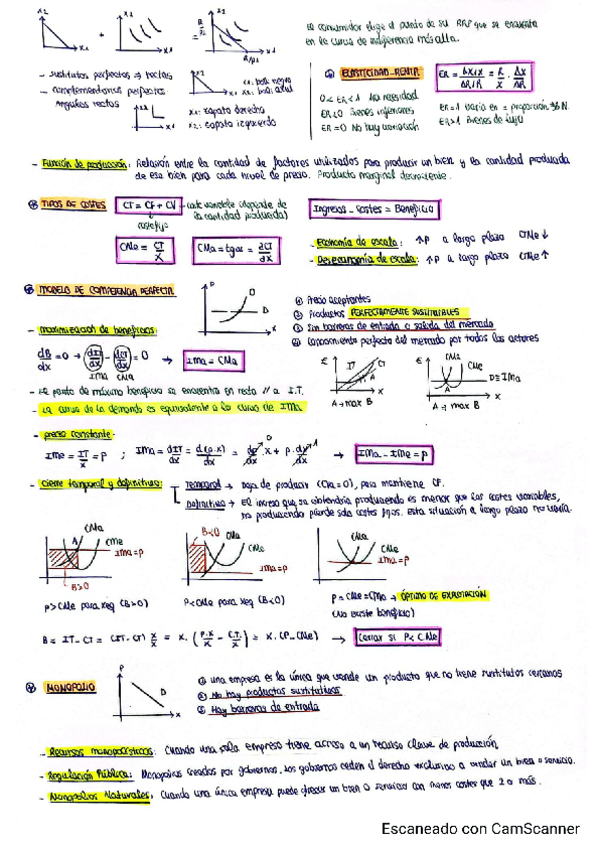 x2
x1
x1
x1
El consumidor elige el punto de su RRP que se encuentra
en la curva de indiferencia más alta.
- sustitutos perfectos → rectas
- complementarios perfectos:
ángulos rectos
x1: boli negro
x2: boli azul
x1: zapato derecho
x2: zapato izquierdo
ELASTICIDAD-RENTA
ER = ΔX/X / ΔR/R = R/X · ΔX/ΔR
0 < ER < 1 1ª necesidad
ER<0 Bienes inferiores
ER=0 No hay variación
ER>1 Bienes de lujo
- Función de producción: Relación entre la cantidad de factores utilizados para producir un bien y la cantidad producida
de ese bien para cada nivel de precio. Producto marginal decreciente.
TIPOS DE COSTES
CT = CF + CV
coste variable (depende de
la cantidad producida)
coste fijo
Ingresos - Costes = Beneficio
CMe = CT/X
CMa = tgα = ∂CT/∂X
- Economía de escala: ↑P a largo plazo CMe ↓
- Deseconomía de escala: ↑P a largo plazo CMe ↑
MODELO DE COMPETENCIA PERFECTA
P
O
D
X
① Precio aceptantes
② Productos PERFECTAMENTE SUSTITUIBLES
③ Sin barreras de entrada o salida del mercado
④ Conocimiento perfecto del mercado por todos los actores
- Maximización de beneficios:
dB/dx = 0 → dIT/dx - dCT/dx = 0 → IMa = CMa
IMa CMa
€
IT
CT
A
B
X
A → max B
€
CMa
CMe
D≡IMa
A
X
A → max B
- El punto de máximo beneficio se encuentra en recta // a I.T.
- La curva de la demanda es equivalente a la curva de IMa
- precio constante:
IMe = IT/X = P ; IMa = dIT/dx = d(P·X)/dx = dP/dx · X + P · dx/dx → IMa = IMe = P
- Cierre temporal y definitivo:
Temporal → deja de producir (CMa=0), pero mantiene CF.
Definitivo → El ingreso que se obtendría produciendo es menor que los costes variables,
no produciendo pierde solo costes fijos. Esta situación a largo plazo no varía.
CMa
A
CMe
IMa=P
B>0
B<0
CMa
CMe
IMa=P
CMa
CMe
IMa=P
P>CMe para Xeq (B>0)
P<CMe para Xeq (B<0)
P = CMe = CMa → ÓPTIMO DE EXPLOTACIÓN
(No existe beneficio)
B = IT - CT = (IT-CT) X/X = X · (P·X/X - CT/X) = X · (P-CMe) → Cerrar si P<CMe
MONOPOLIO
P
D
X
① Una empresa es la única que vende un producto que no tiene sustitutos cercanos
② No hay productos sustitutivos
③ Hay barreras de entrada
- Recursos monopolísticos: Cuando una sola empresa tiene acceso a un recurso clave de producción
- Regulación Pública: Monopolios creados por gobiernos. Los gobiernos ceden el derecho exclusivo a vender un bien o servicio.
- Monopolios Naturales: Cuando una única empresa puede ofrecer un bien o servicio con menos costes que 2 o más.
Escaneado con CamScanner